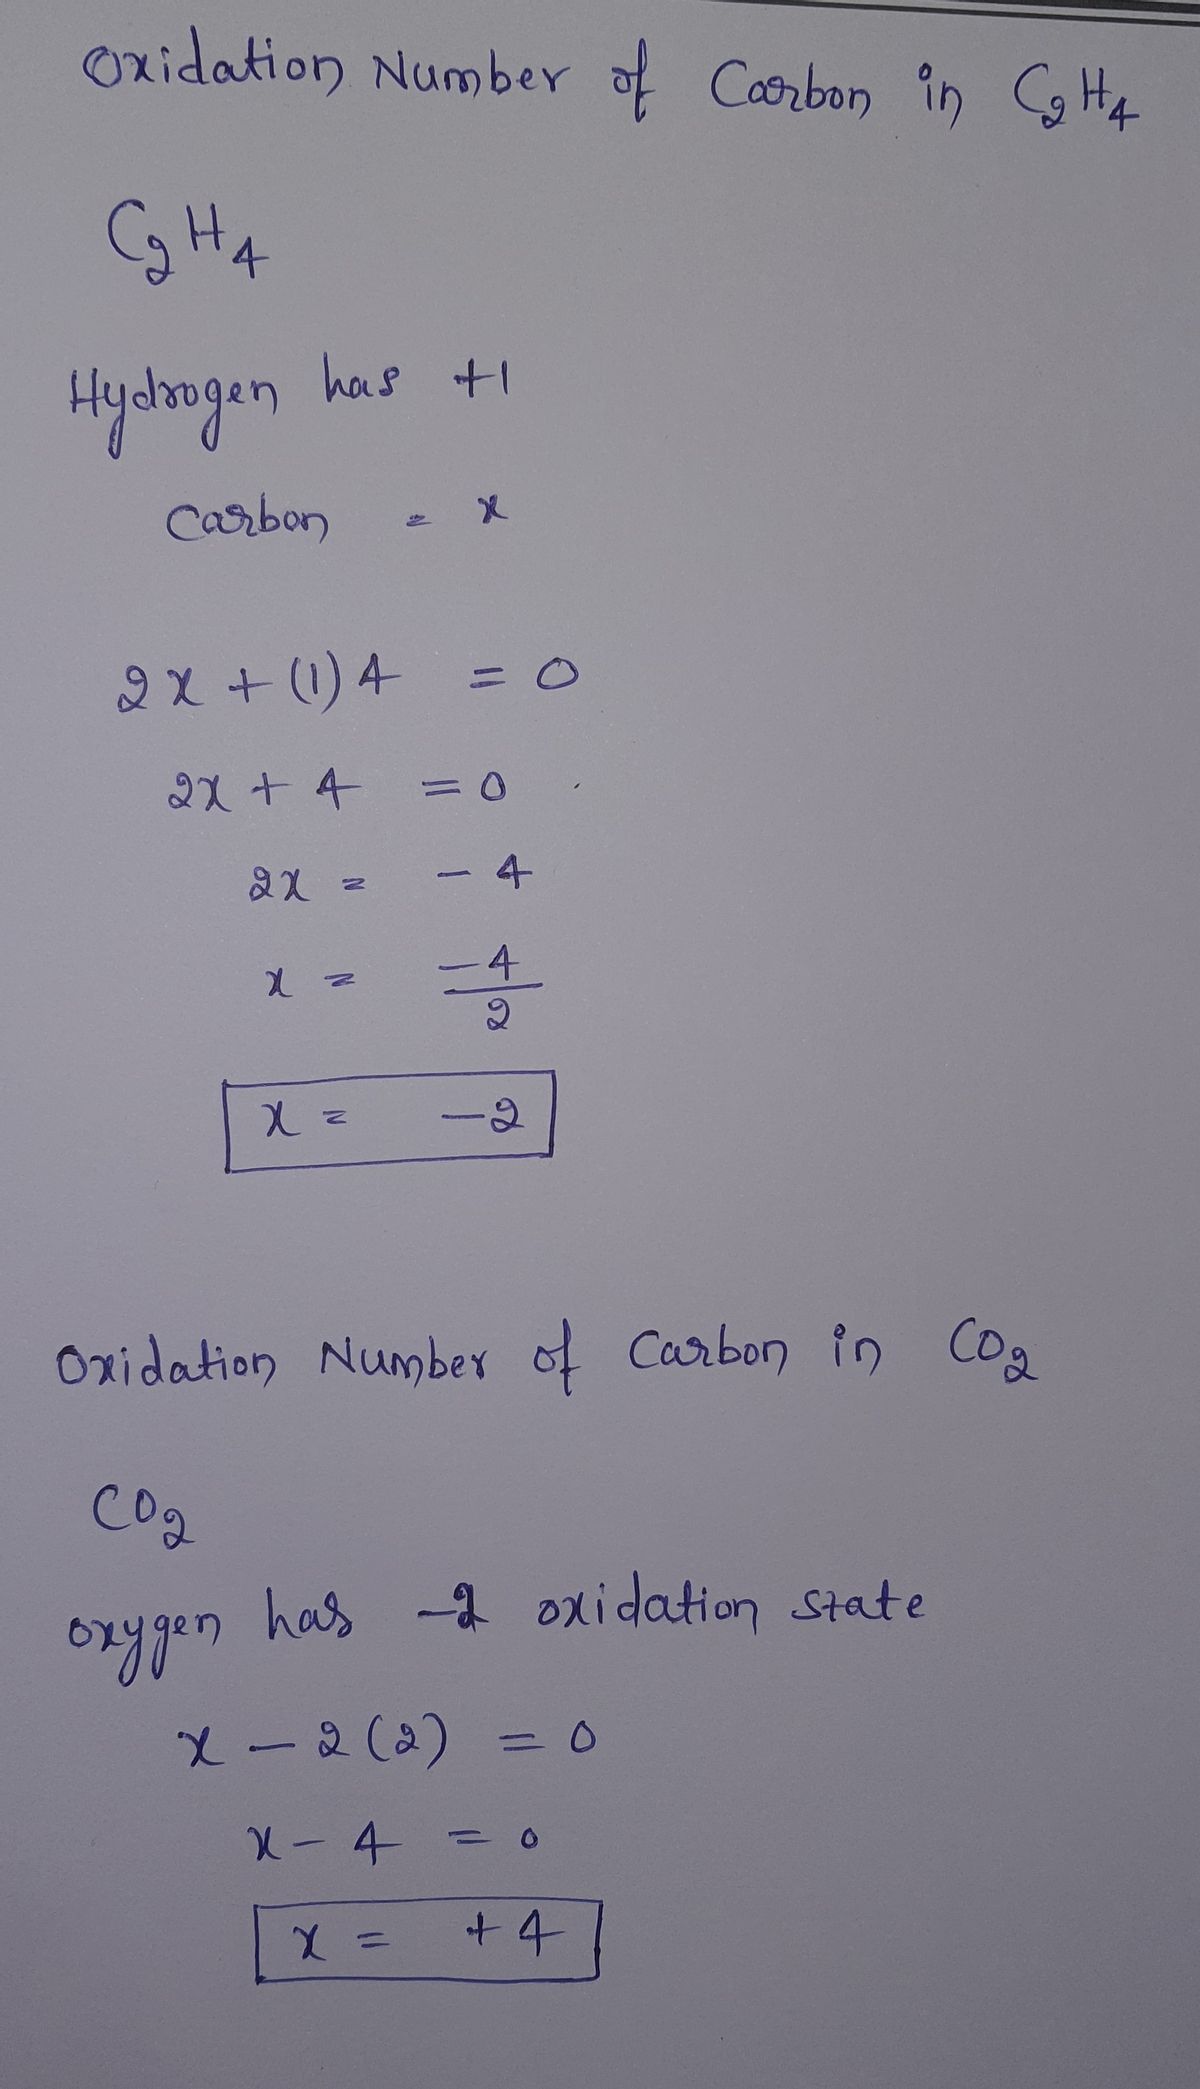 Oxidation Number of Carbon in C₂H₄
C₂H₄
Hydrogen has +1
Carbon = x
2x + (1) 4 = 0
2x + 4 = 0
2x = - 4
x = -4/2
x = -2
Oxidation Number of Carbon in CO₂
CO₂
oxygen has -2 oxidation state
x - 2 (2) = 0
x - 4 = 0
x = +4